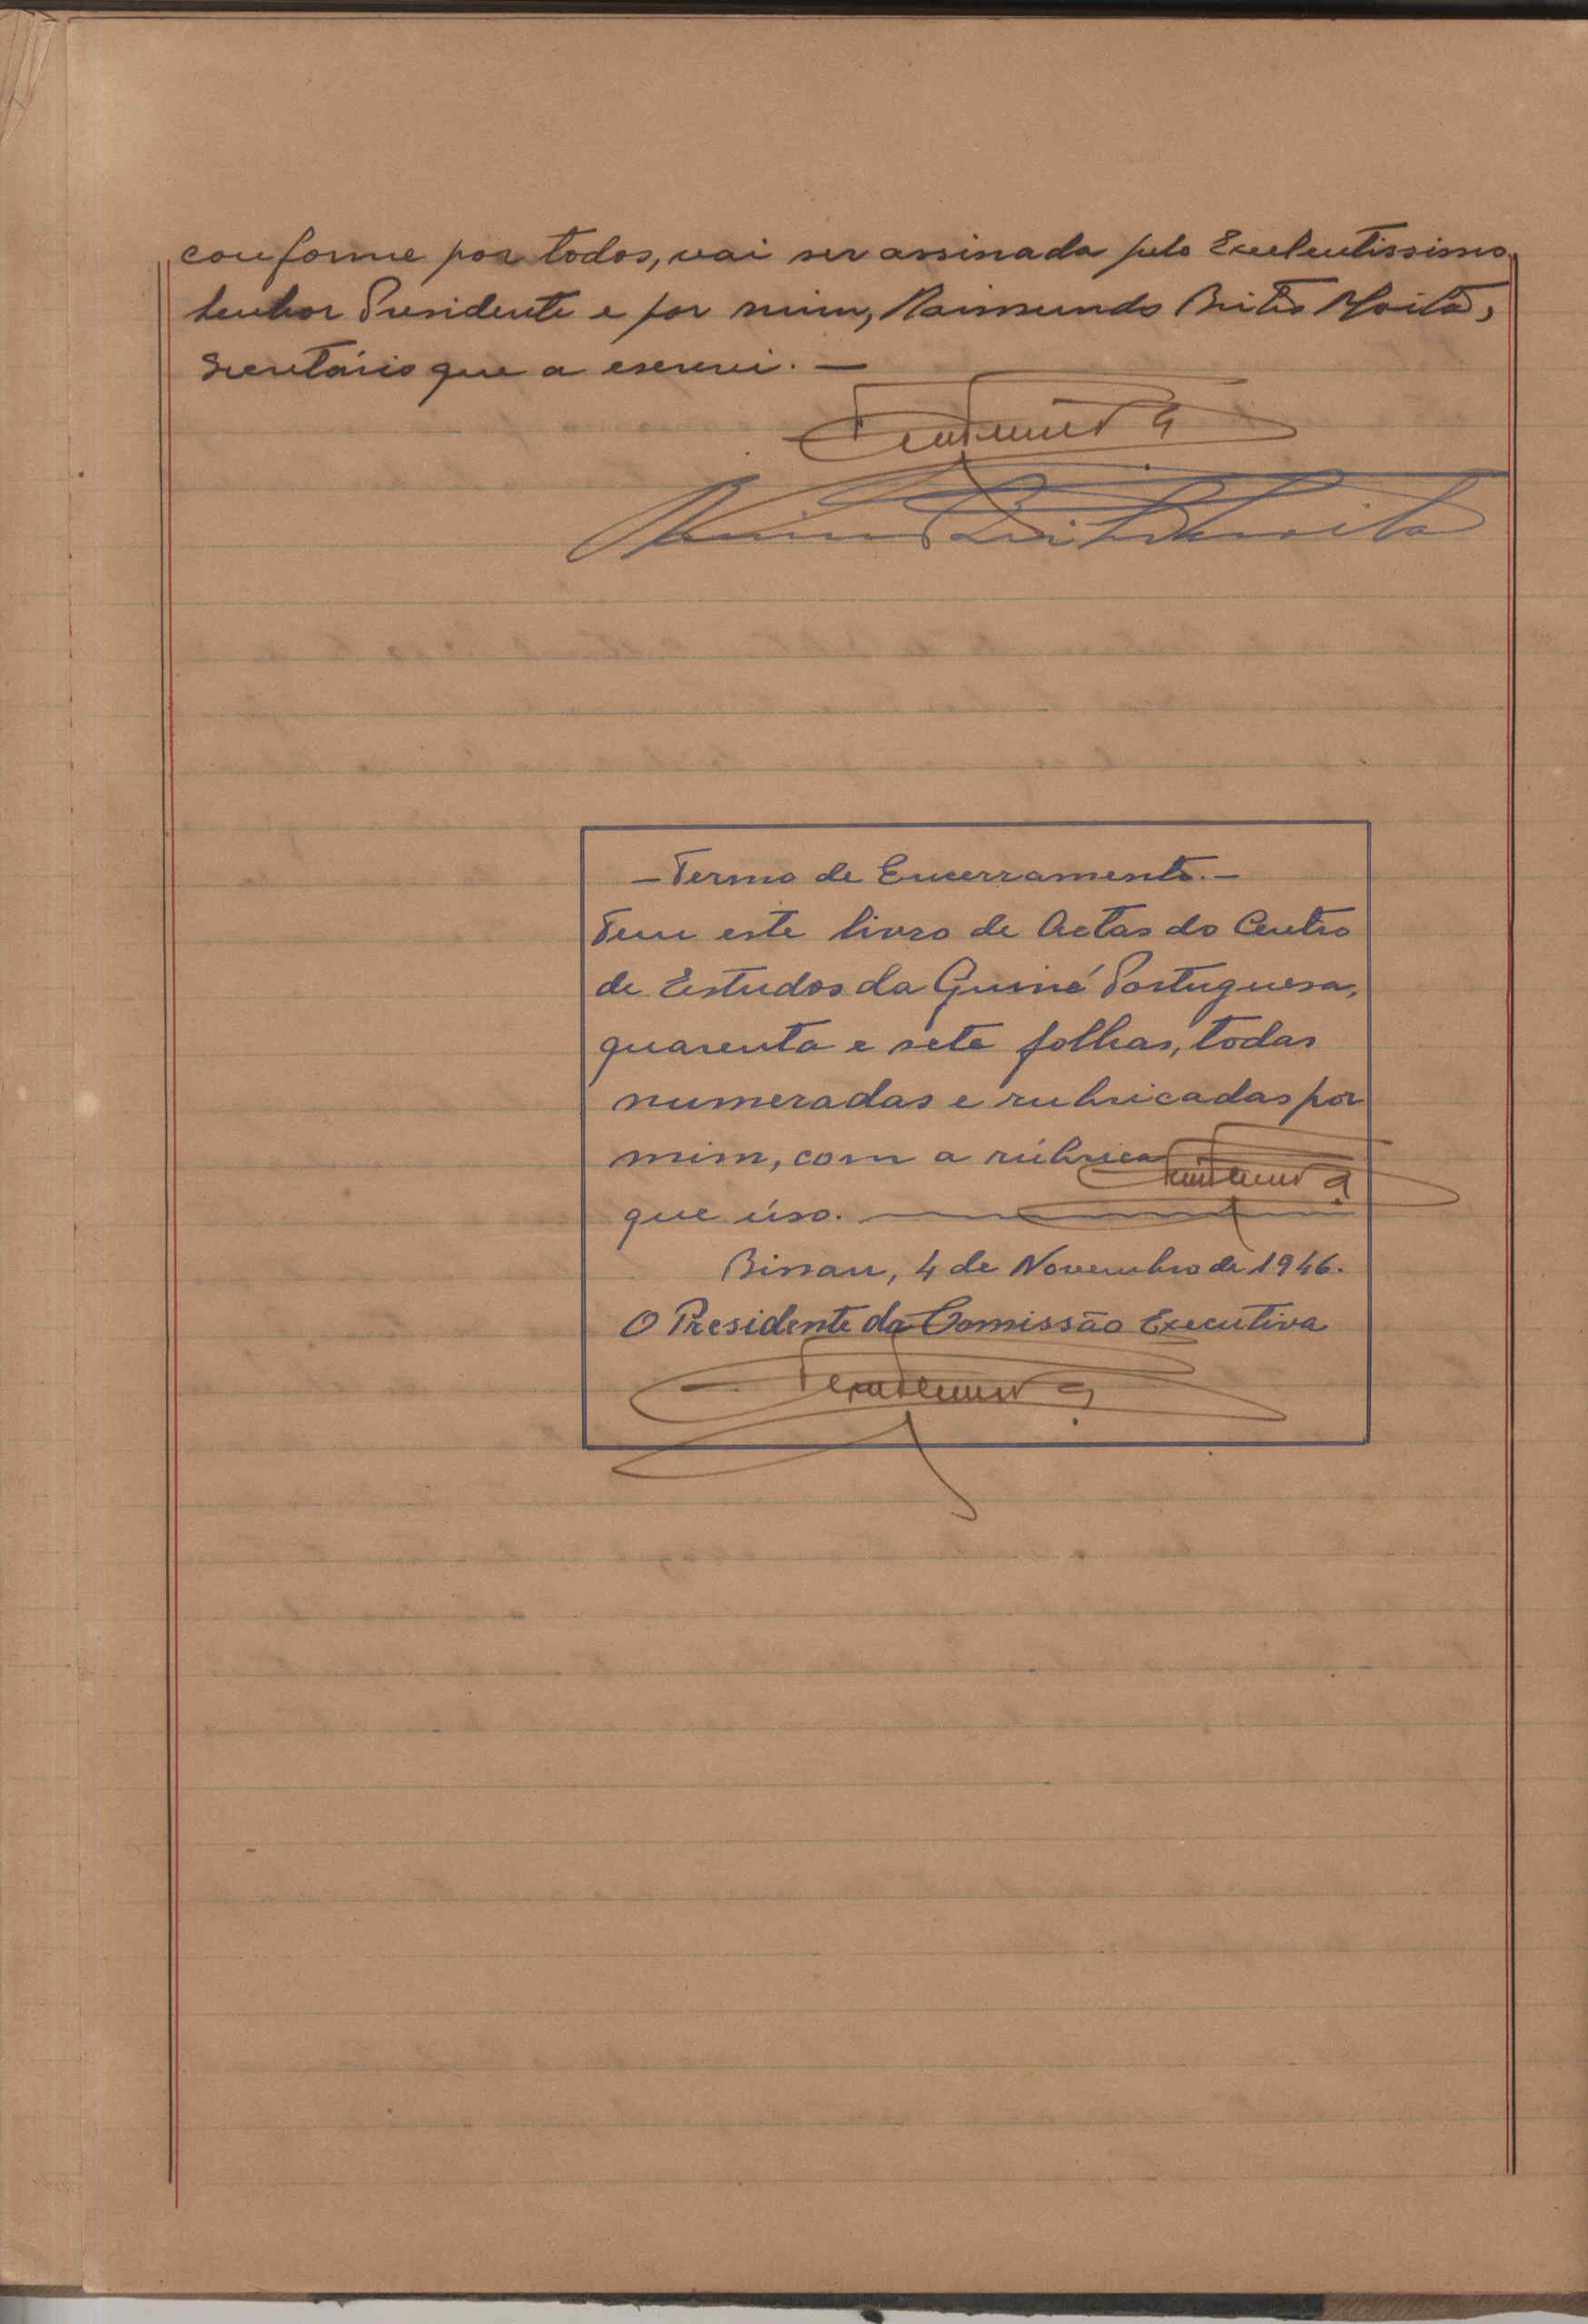 conforme por todos, vai ser assinada pelo Excelentissimo
Senhor Presidente e por mim, Raimundo Brito Moita,
Secretário que a escrevi. —
— Termo de Encerramento. —
Tem este livro de Actas do Centro
de Estudos da Guiné Portuguesa,
quarenta e sete folhas, todas
numeradas e rubricadas por
mim, com a rúbrica
que úso.
Bissau, 4 de Novembro de 1946.
O Presidente da Comissão Executiva